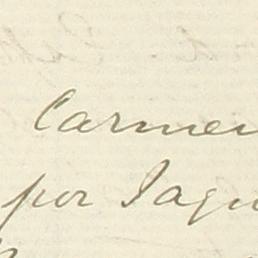 Carmen
por Jagu